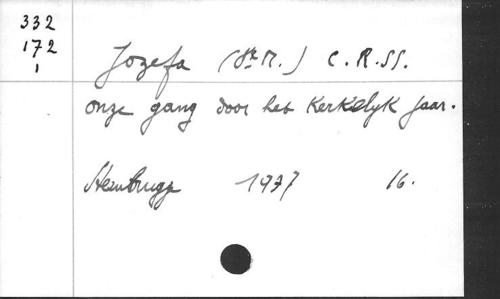 332
172
1
Jozefa (Sr. M.) C.R.SS.
onze gang door het Kerkelyk Jaar.
Steenbrugge 1937 16.